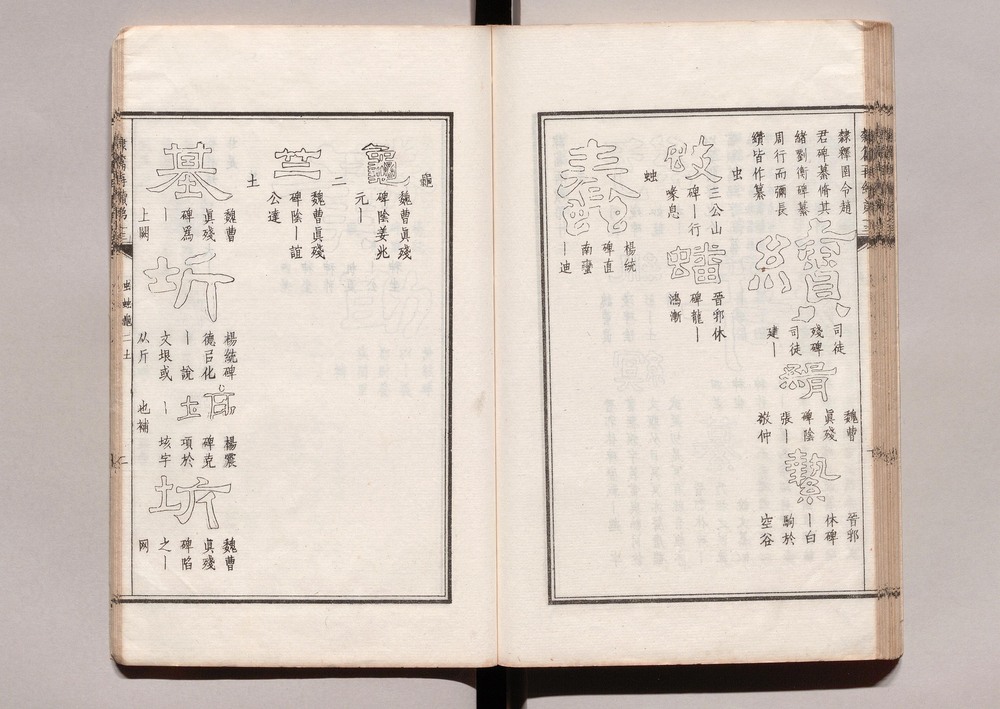 隸釋圉令趙
君碑纂脩其
緒劉衡碑纂
周行而彌長
纘皆作纂
司徒
殘碑
司徒
建丨
絹
魏曹
眞殘
碑陰
張丨
敬仲
縶
晉郛
休碑
丨白
駒於
空谷
虫
蚑
三公山
碑丨行
喙息
蟠
晉郛休
碑龍丨
鴻漸
䖵
蠢
楊統
碑直
南蠻
丨迪
龜
龜
魏曹眞殘
碑陰姜兆
元丨
二
竺
魏曹眞殘
碑陰丨誼
公達
土
墓
魏曹
眞殘
碑爲
丨
上闕
圻
楊統碑
德㠯化
丨說
文垠或
从斤
楊震
碑克
項於
丨垓字
也補
坼
魏曹
眞殘
碑陷
之丨
网
虫䖵龜二土